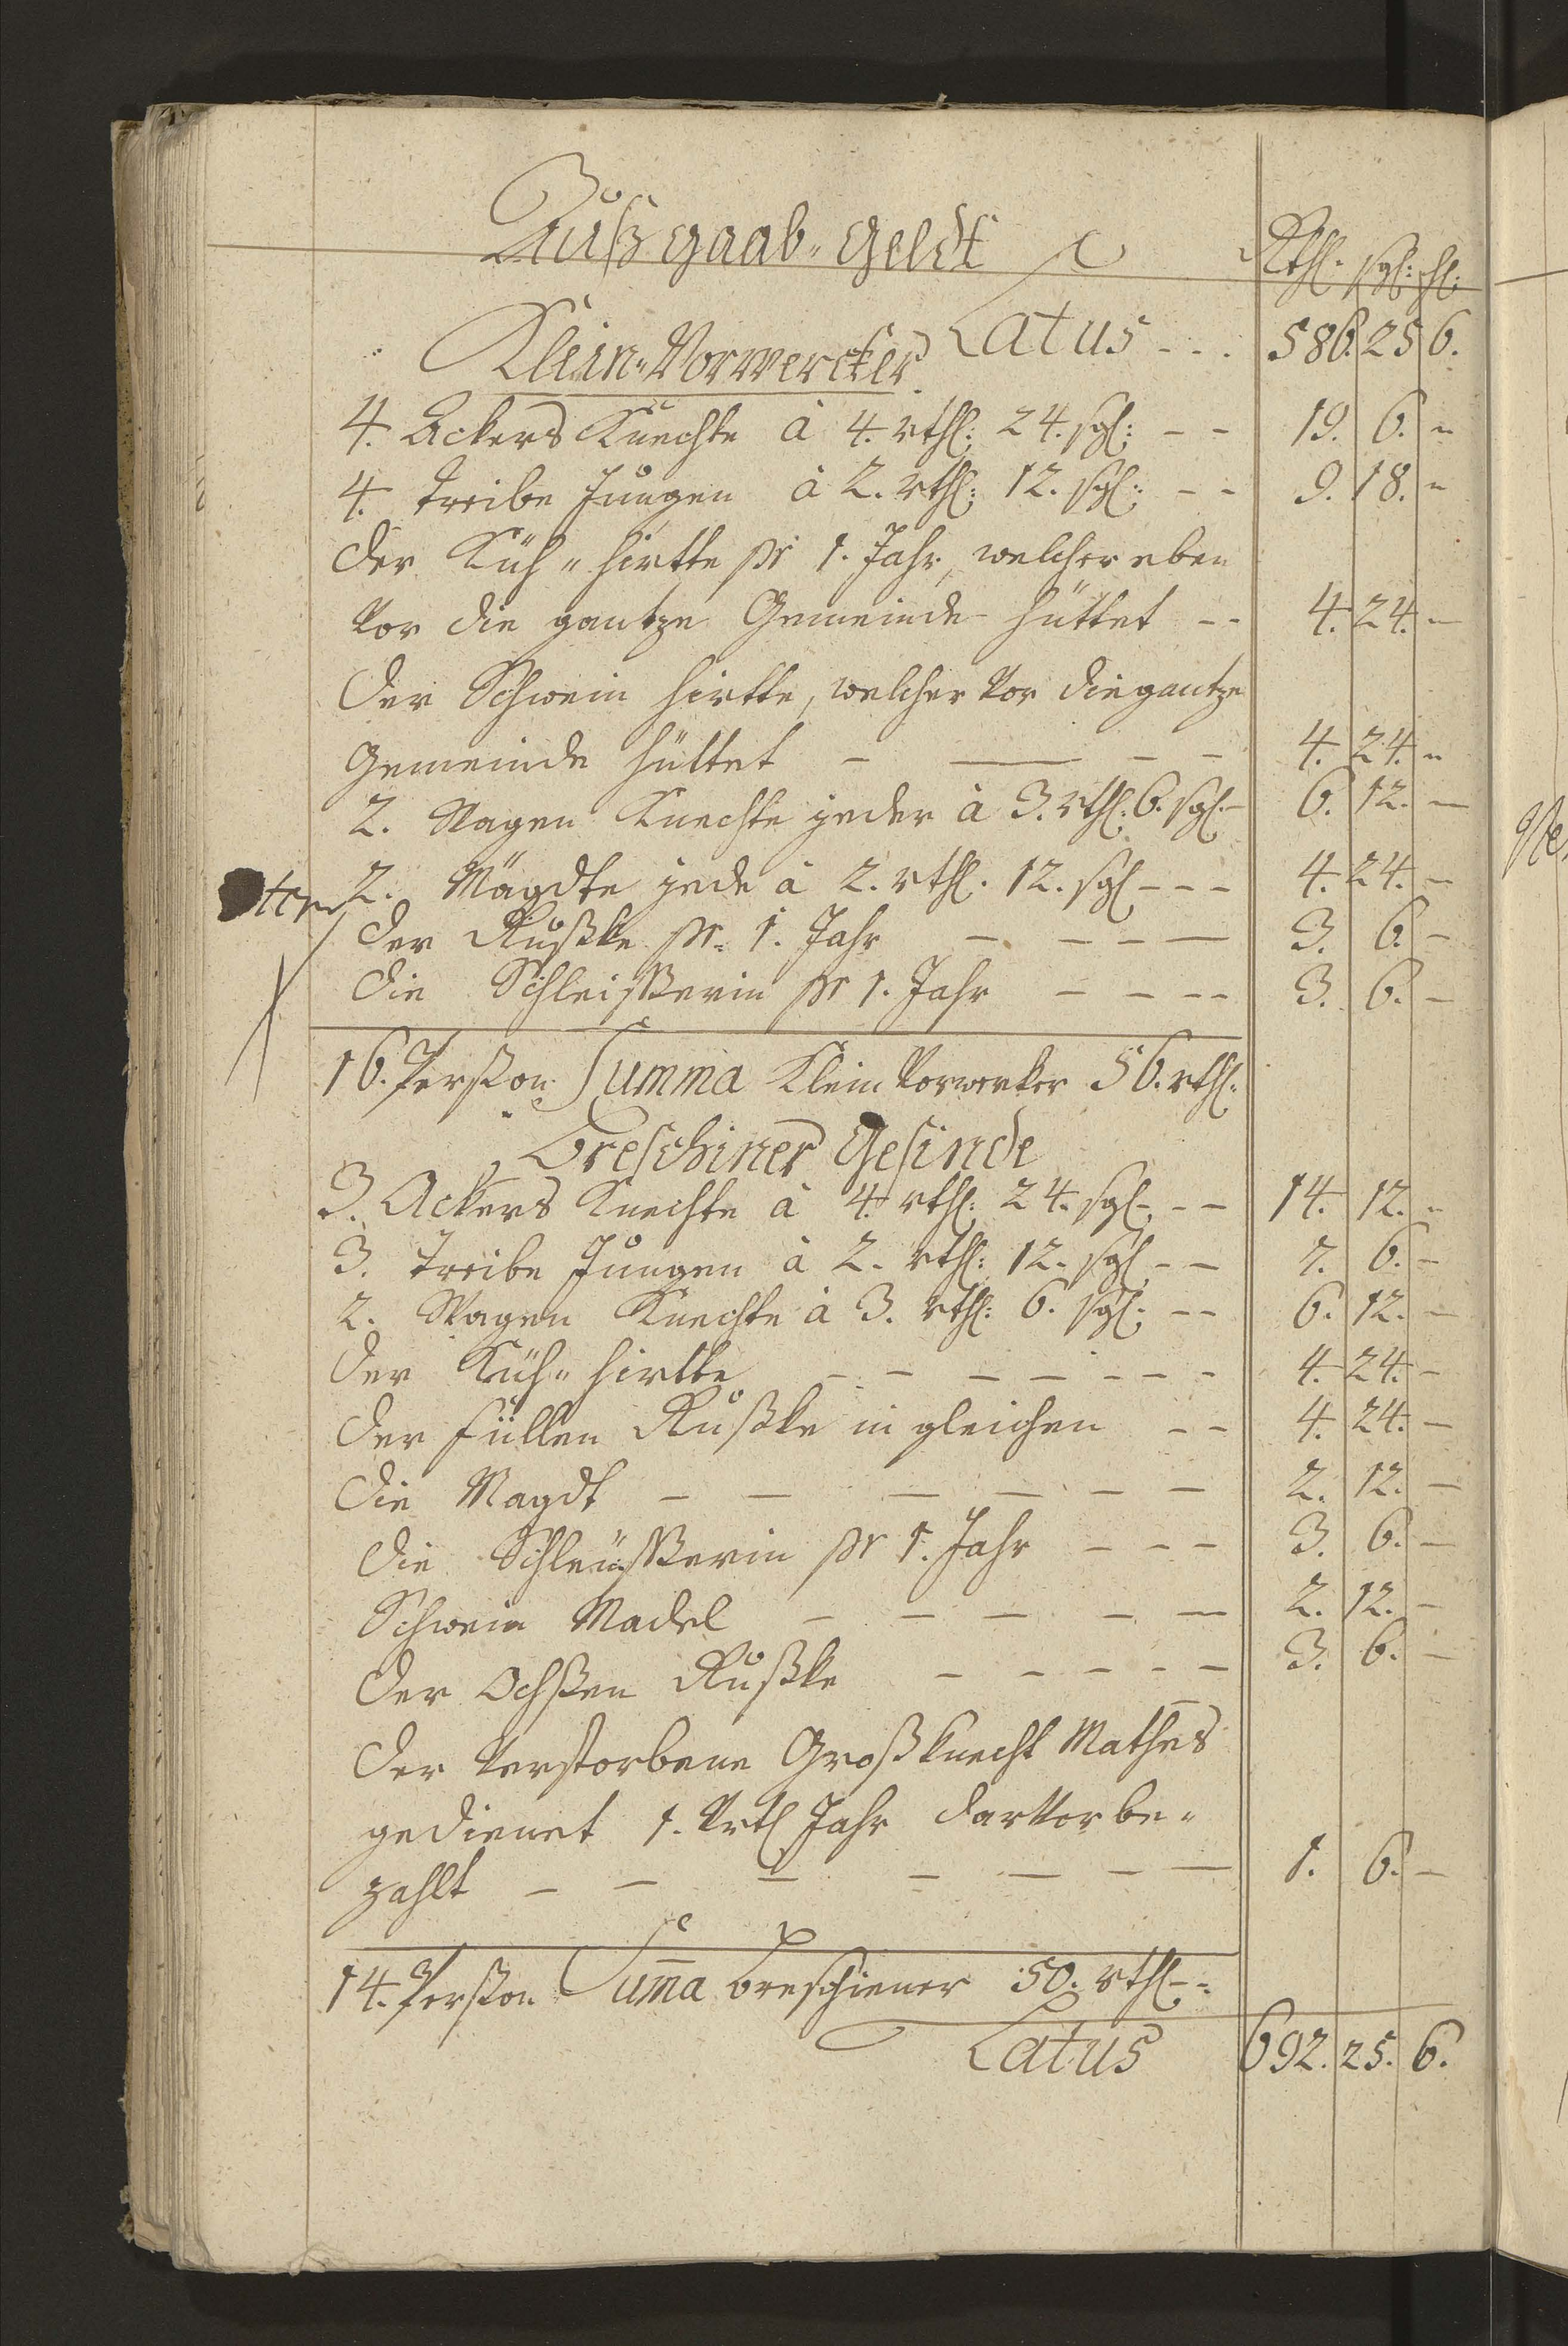 Außgaab-Geldt
Rthl. sgl: hl:
Latus - - - 586. 25 6.
Klein-Vorwercker
4. Ackers Knechte à 4. rthl: 24. sgl: - - 19. 6. -
4. Treibe Jungen à 2. rthl: 12. sgl: - - 9. 18. -
Der Küh-hirtte pr 1. Jahr, welcher eben
vor die gantze Gemeinde hüttet - - 4. 24. -
Der Schwein hirtte, welcher vor die gantze
Gemeinde hüttet - - - - 4. 24. -
2. Wagen Knechte jeder à 3. rthl: 6. sgl. - 6. 12. -
2. Mägdte jede à 2. rthl. 12. sgl - - - 4. 24. -
Der Rußke pr. 1. Jahr - - - - 3. 6. -
Die Schleißerin pr 1. Jahr - - - - 3. 6. -
16. Perßon Summa Klein Vorwerker 56. rthl:
Breschiner Gesinde
3. Ackers Knechte à 4. rthl: 24. sgl. - - 14. 12. -
3. Treibe Jungen à 2. rthl: 12. sgl - - 7. 6. -
2. Wagen Knechte à 3. rthl: 6. sgl. - - 6. 12. -
Der Küh-hirtte - - - - - - - 4. 24. -
Der füllen Rußke in gleichen - - 4. 24. -
Die Magdt - - - - - - 2. 12. -
Die Schleüßerin pr 1. Jahr - - - 3. 6. -
Schwein Madel - - - - - 2. 12. -
Der Ochßen Rußke - - - - - 3. 6. -
Der verstorbene Großknecht Mathes
gedienet 1. Vrtl Jahr darvor be-
zahlt - - - - - - - 1. 6. -
14. Perßon Summa Breschiener 50. rthl - -
Latus 692. 25. 6.